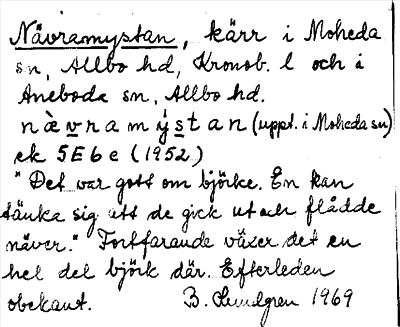 Nävramystan, kärr i Moheda
sn, Allbo hd, Kronob. l och i
Aneboda sn, Allbo hd.
nævramýstan (uppt. i Moheda sn)
ek 5E6e (1952)
"Det var gott om björke. En kan
tänka sig att de gick ut och flådde
näver." Fortfarande växer det en
hel del björk där. Efterleden
obekant. B. Lundgren 1969